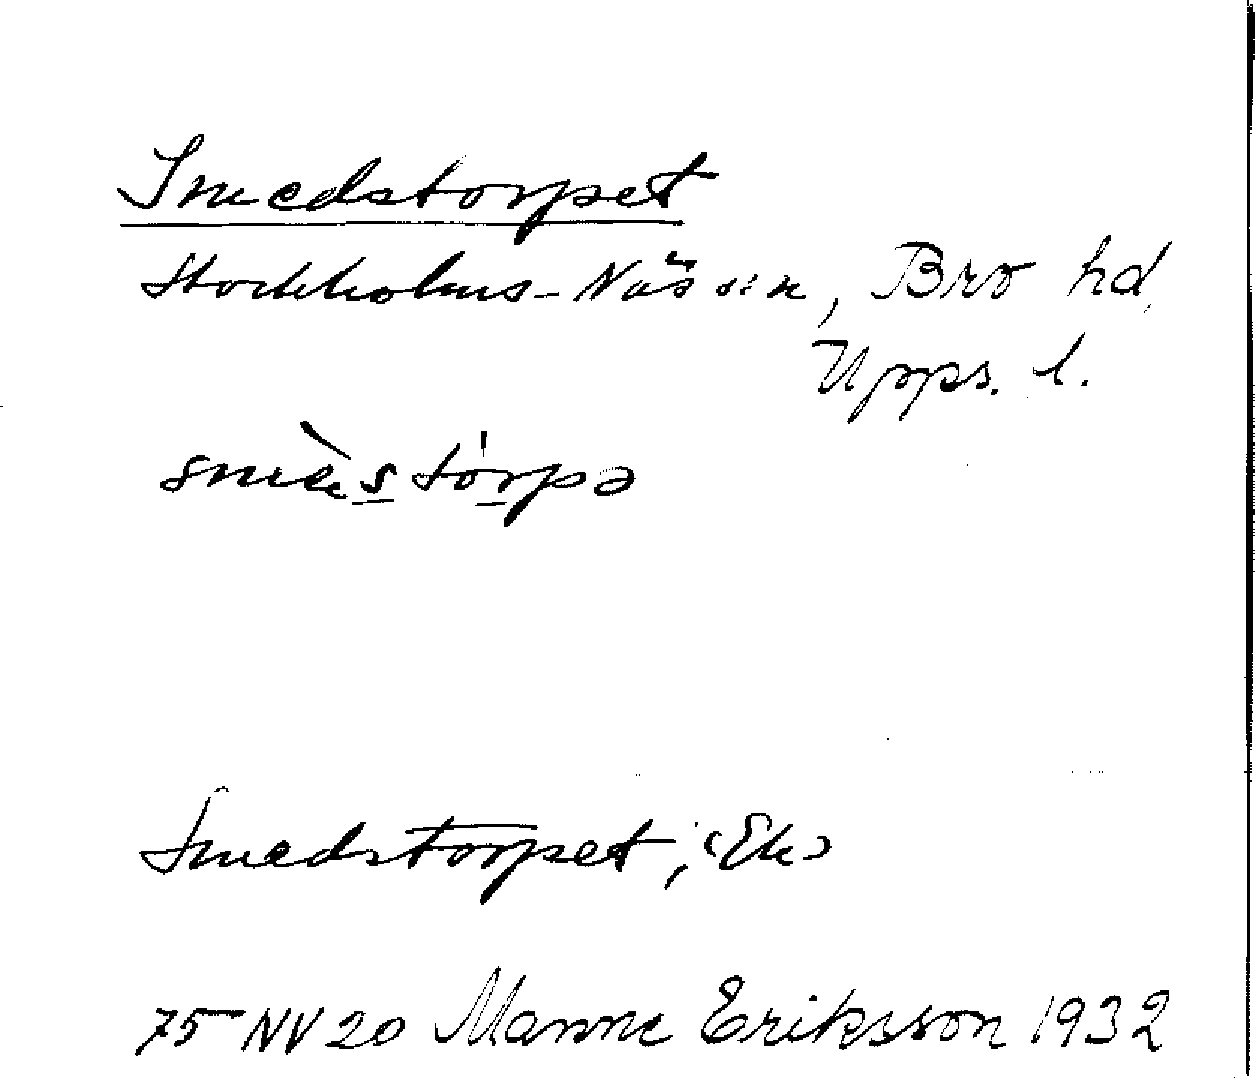 Smedstorpet
Stockholms-Näs sn, Bro hd,
Upps. l.
smè̀stórpə
Smedstorpet, (Ek)
75 NV 20 Manne Eriksson 1932